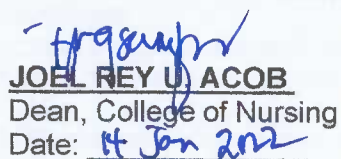 JOEL REY U. ACOB
Dean, College of Nursing
Date: 14 Jan 2022